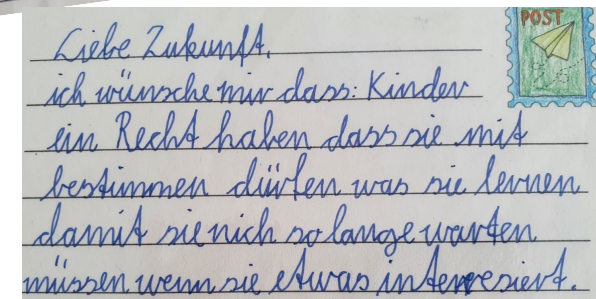 POST
Liebe Zukunft,
ich wünsche mir dass: Kinder
ein Recht haben dass sie mit
bestimmen dürfen was sie lernen
damit sie nich so lange warten
müssen wenn sie etwas interesiert.